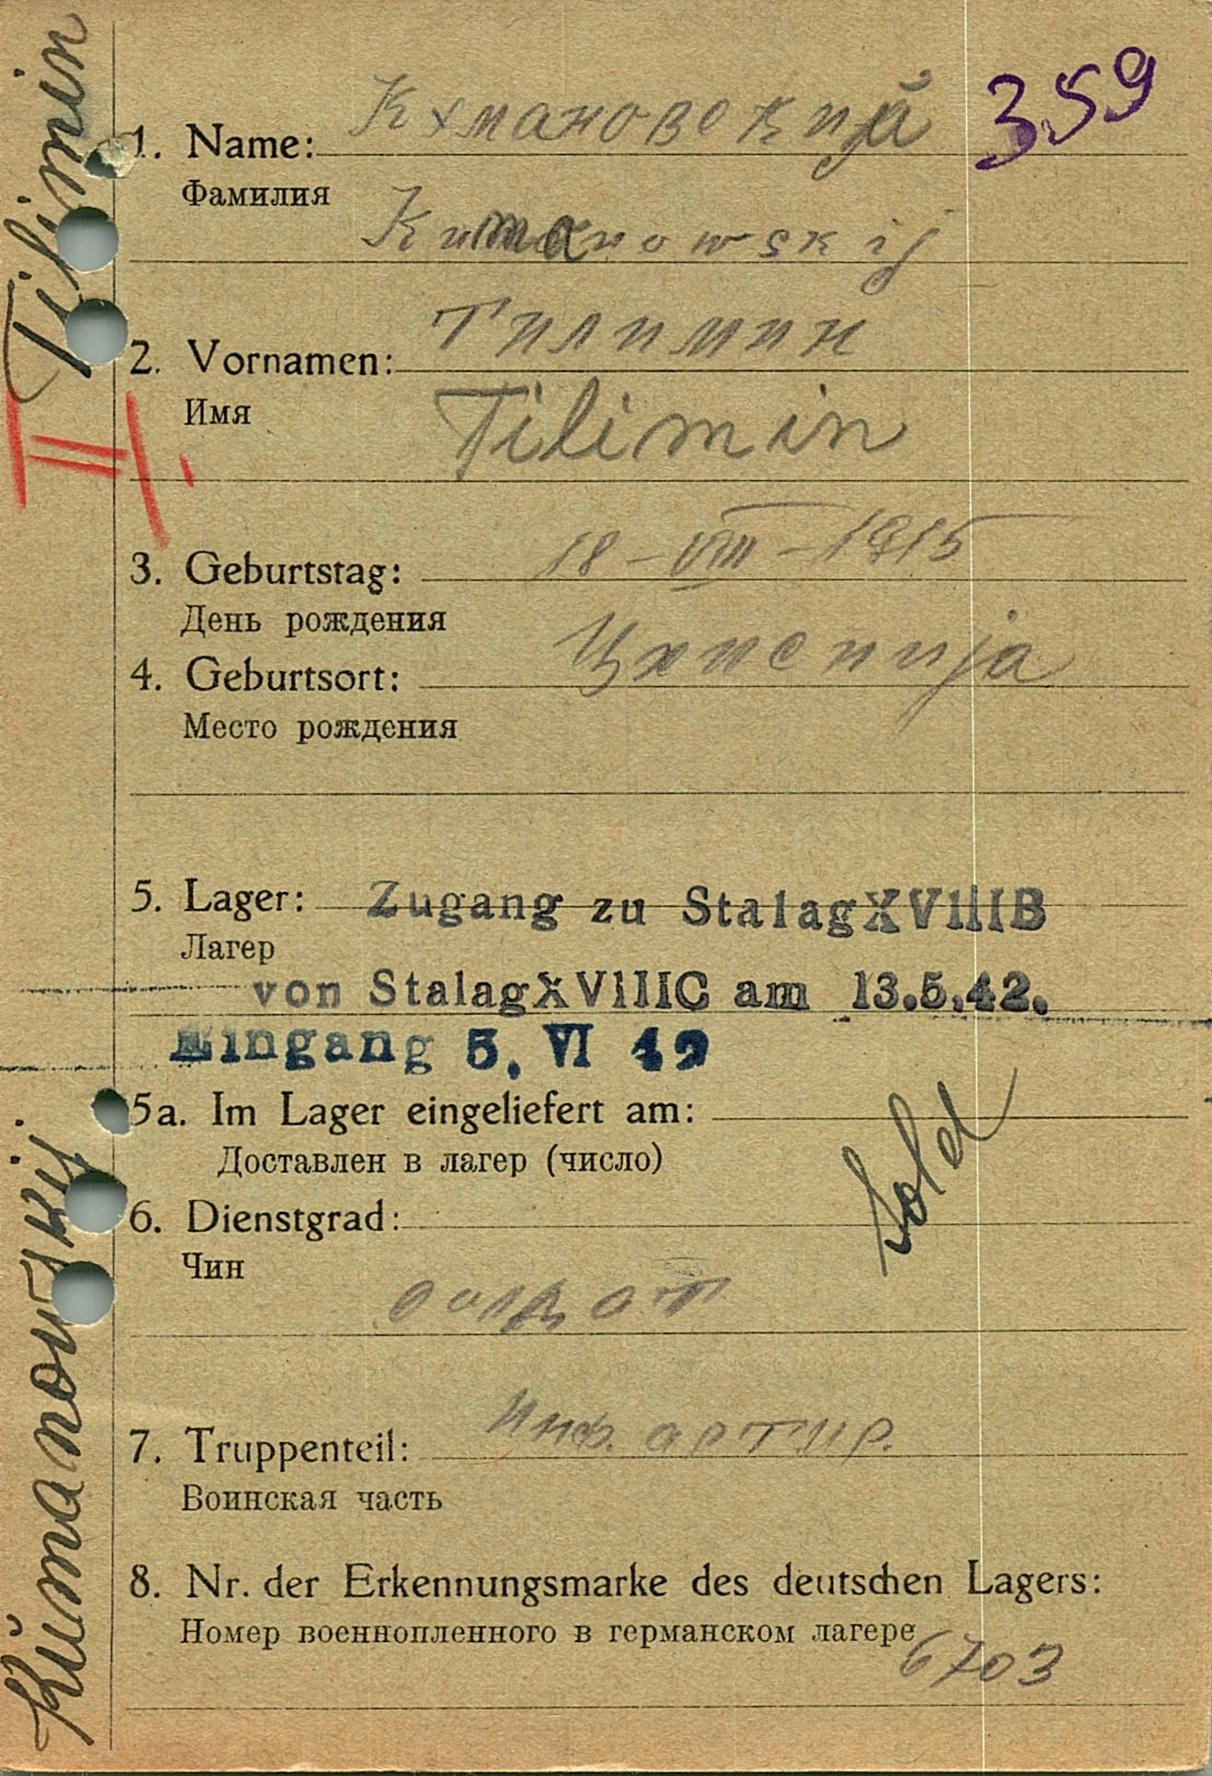 Tilimin
359
1. Name: Кхмановский
Фамилия
Kumanowskij
2. Vornamen: Тилимин
Имя
Tilimin
II.
3. Geburtstag: 18 – VIII – 1915
День рождения
4. Geburtsort:
Место рождения
5. Lager: Zugang zu Stalag XVIIIB
Лагер
von Stalag XVIIIC am 13.5.42.
Eingang 5. VI 42
5a. Im Lager eingeliefert am:
Доставлен в лагер (число)
Sold
6. Dienstgrad:
Чин
солдат
7. Truppenteil: Инф.
Воинская часть
8. Nr. der Erkennungsmarke des deutschen Lagers:
Номер военнопленного в германском лагере
6703
Kŭmanowskij